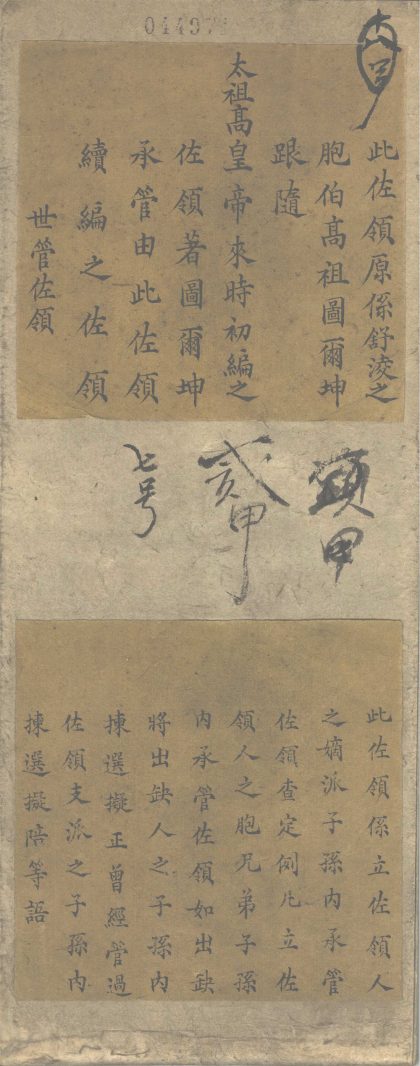 04497
此佐領原係舒淩之
胞伯高祖圖爾坤
跟隨
太祖高皇帝來時初編之
佐領著圖爾坤
承管由此佐領
續編之佐領
世管佐領
頭甲
貳甲
七号
此佐領係立佐領人
之嫡派子孫內承管
佐領查定例凡立佐
領人之胞兄弟子孫
內承管佐領如出缺
將出缺人之子孫內
揀選擬正曾經管過
佐領支派之子孫內
揀選擬陪等語